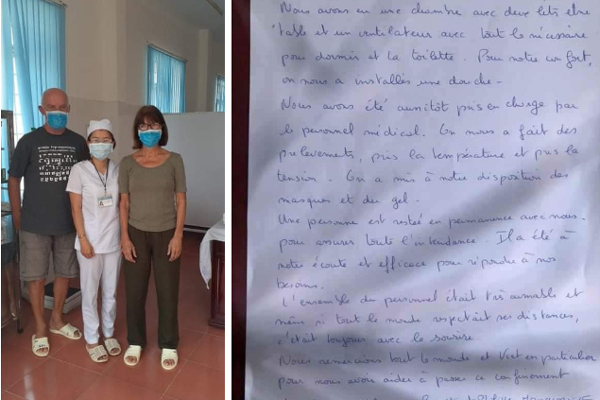 Nous avons eu une chambre avec deux lits, une
table et un ventilateur avec tout le nécessaire
pour dormir et la toilette. Pour notre confort,
on nous a installés une douche.
Nous avons été aussitôt pris en charge par
le personnel médical. On nous a fait des
prélevements, pris la température et pris la
tension. On a mis à notre disposition des
masques et du gel.
Une personne est restée en permanence avec nous
pour assurer toute l'intendance. Il a été à
notre écoute et efficace pour répondre à nos
besoins.
L'ensemble du personnel était très aimable et
même si tout le monde respectait ses distances,
c'était toujours avec le sourire
Nous remercions tout le monde et Viet en particulier
pour nous avoir aider à passer ce confinement